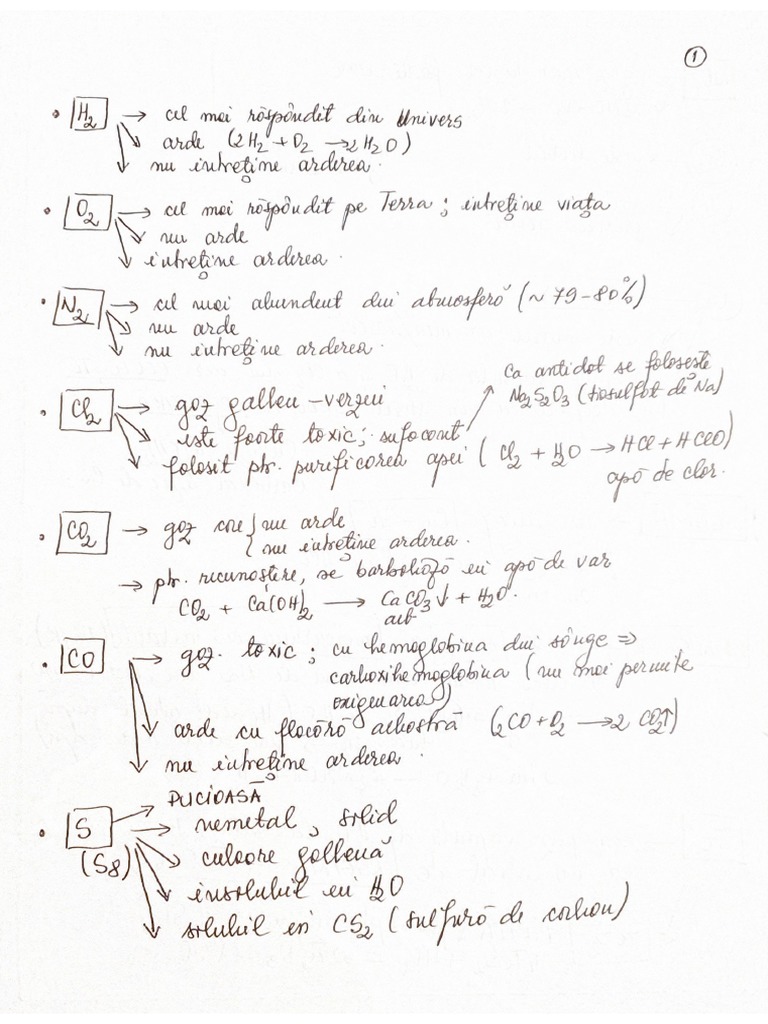 1
• H2 → cel mai răspândit din Univers
arde (2H2 + O2 → 2H2O)
nu întreține arderea.
• O2 → cel mai răspândit pe Terra; întreține viața
nu arde
întreține arderea.
• N2 → cel mai abundent din atmosferă (~ 79-80%)
nu arde
nu întreține arderea.
Ca antidot se folosește
Na2S2O3 (tiosulfat de Na)
• Cl2 → gaz galben-verzui
este foarte toxic; sufocant
folosit ptr. purificarea apei (Cl2 + H2O → HCl + HClO)
apă de clor.
• CO2 → gaz care { nu arde
nu întreține arderea.
→ ptr. recunoștere, se barbotează în apă de var
CO2 + Ca(OH)2 → CaCO3↓ + H2O.
alb
• CO → gaz toxic; cu hemoglobina din sânge ⇒
carboxihemoglobina (nu mai permite
oxigenarea)
arde cu flacără albastră (2CO + O2 → 2 CO2↑)
nu întreține arderea.
PUCIOASĂ
• S → nemetal, solid
(S8)
culoare galbenă
insolubil în H2O
solubil în CS2 (sulfură de carbon)